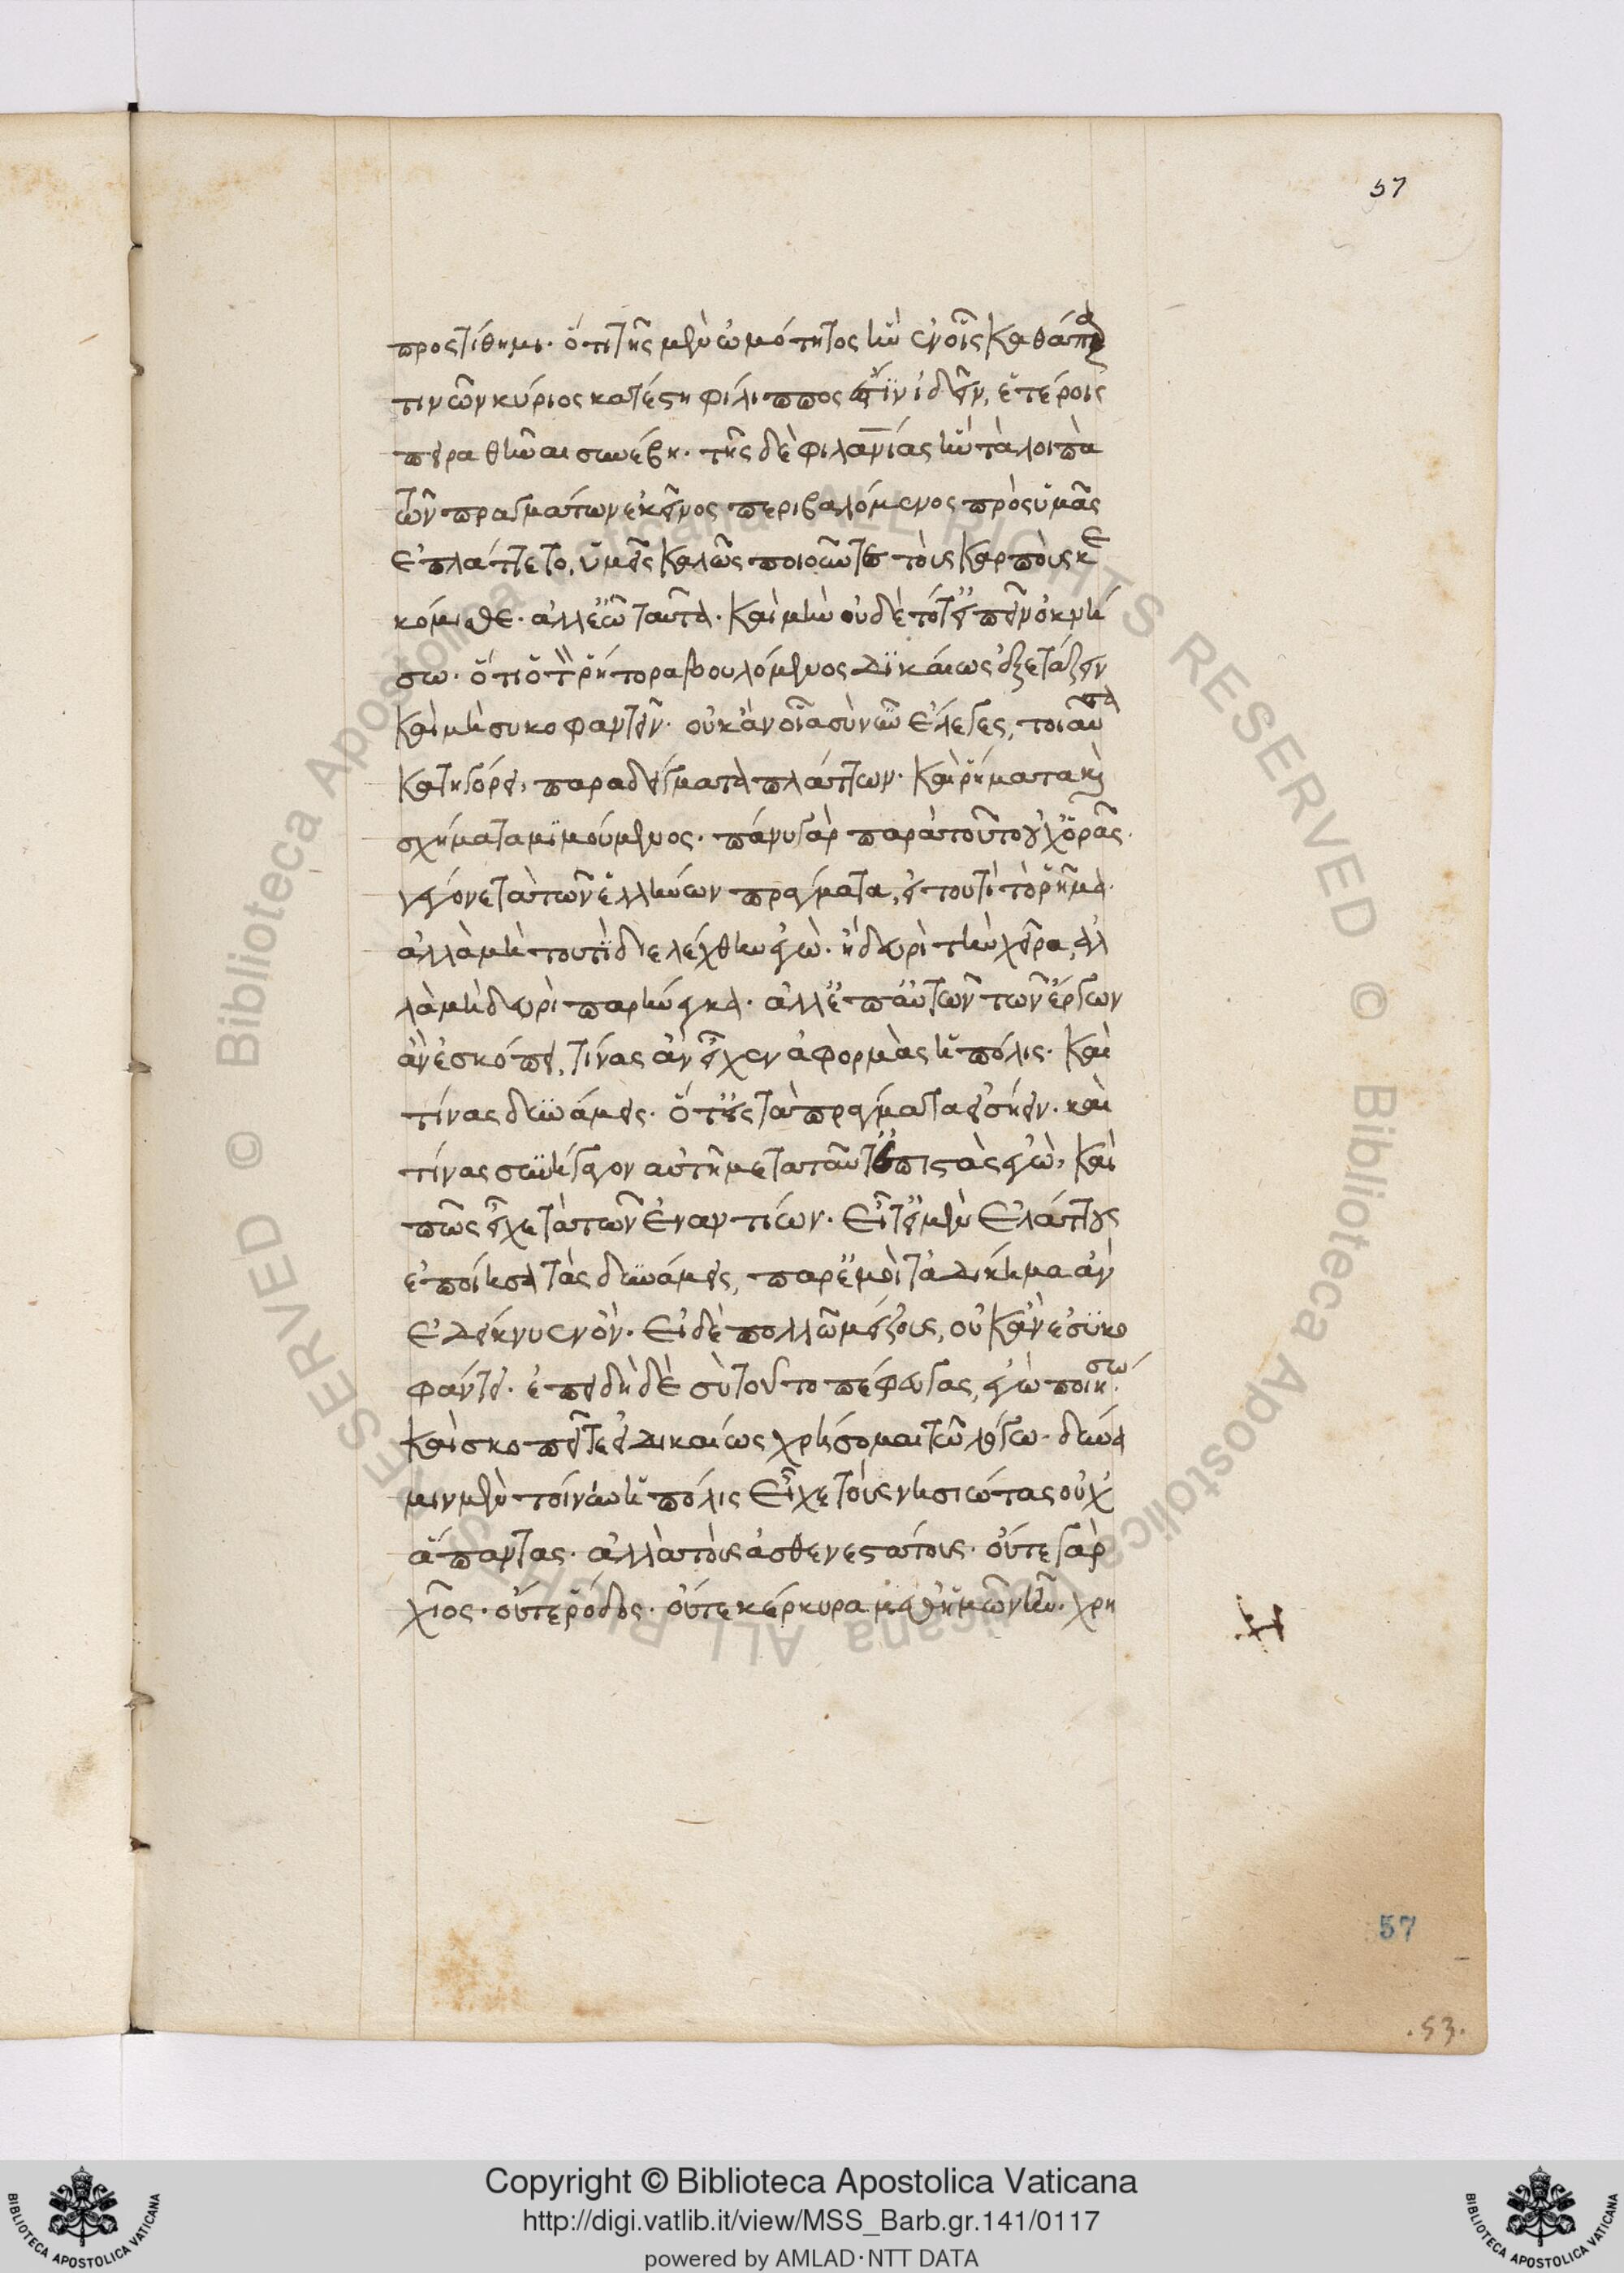 57
προστίθημι· ὅτι τῆς μὲν ὠμότητος ἣν ἐν οἷς καθάπαξ
τινῶν κύριος κατέστη φίλιππος ἔστιν ἰδεῖν, ἑτέροις
πειραθῆναι συνέβη· τῆς δὲ φιλανίας ἣν τὰ λοιπὰ
τῶν πραγμάτων ἐκεῖνος περιβαλόμενος πρὸς ὑμᾶς
ἐπλάττετο, ὑμεῖς καλῶς ποιοῦντες τοὺς καρποὺς κε
κόμισθε· ἀλλ' ἐῶ ταῦτα· καὶ μὴν οὐδὲ τότ' εἰπεῖν ὀκνή
σω· ὅτι ὁ τὸν ῥήτορα βουλόμενος δικαίως ἐξετάζειν
καὶ μὴ συκοφαντεῖν· οὐκ ἂν οἷα σὺ νῦν ἔλεγες, τοιαῦτα
κατηγόρει, παραδείγματα πλάττων· καὶ ῥήματα καὶ
σχήματα μιμούμενος· πάνυ γὰρ παρὰ τοῦτο οὐχ ὁρᾶς·
γέγονε τὰ τῶν ἑλλήνων πράγματα, εἰ τουτὶ τὸ ῥῆμα·
ἀλλὰ μὴ τουτὶ διελέχθην ἐγὼ· ἢ δευρὶ τὴν χεῖρα, ἀλ
λὰ μὴ δευρὶ παρήνεγκα· ἀλλ' ἐπ' αὐτῶν τῶν ἔργων
ἂν ἐσκόπει, τίνας ἂν εἶχεν ἀφορμὰς ἡ πόλις· καὶ
τίνας δυνάμεις· ὅτ' εἰς τὰ πράγματα εἰσῄειν· καὶ
τίνας συνήγαγον αὐτῇ μετὰ ταῦτ' ἐπιστὰς ἐγὼ, καὶ
πῶς εἶχε τὰ τῶν ἐναντίων· εἶτ' εἰ μὲν ἐλάττους
ἐποίησα τὰς δυνάμεις, παρ' ἐμοὶ τἀδίκημα ἂν
ἐδείκνυεν ὄν· εἰ δὲ πολλῶ μείζους, οὐκ ἂν ἐσυκο
φάντει· ἐπειδὴ δὲ σὺ τοῦτο πέφευγας, ἐγὼ ποιήσω·
καὶ σκοπεῖτε εἰ δικαίως χρήσομαι τῶ λόγω· δύνα
μιν μὲν τοίνυν ἡ πόλις εἶχε τοὺς νησιώτας οὐχ
ἅπαντας· ἀλλὰ τοὺς ἀσθενεστάτους· οὔτε γὰρ
χῖος· οὔτε ῥόδος· οὔτε κέρκυρα μεθ' ἡμῶν ἦν· χρη
57
.53.
Copyright © Biblioteca Apostolica Vaticana
http://digi.vatlib.it/view/MSS_Barb.gr.141/0117
powered by AMLAD·NTT DATA